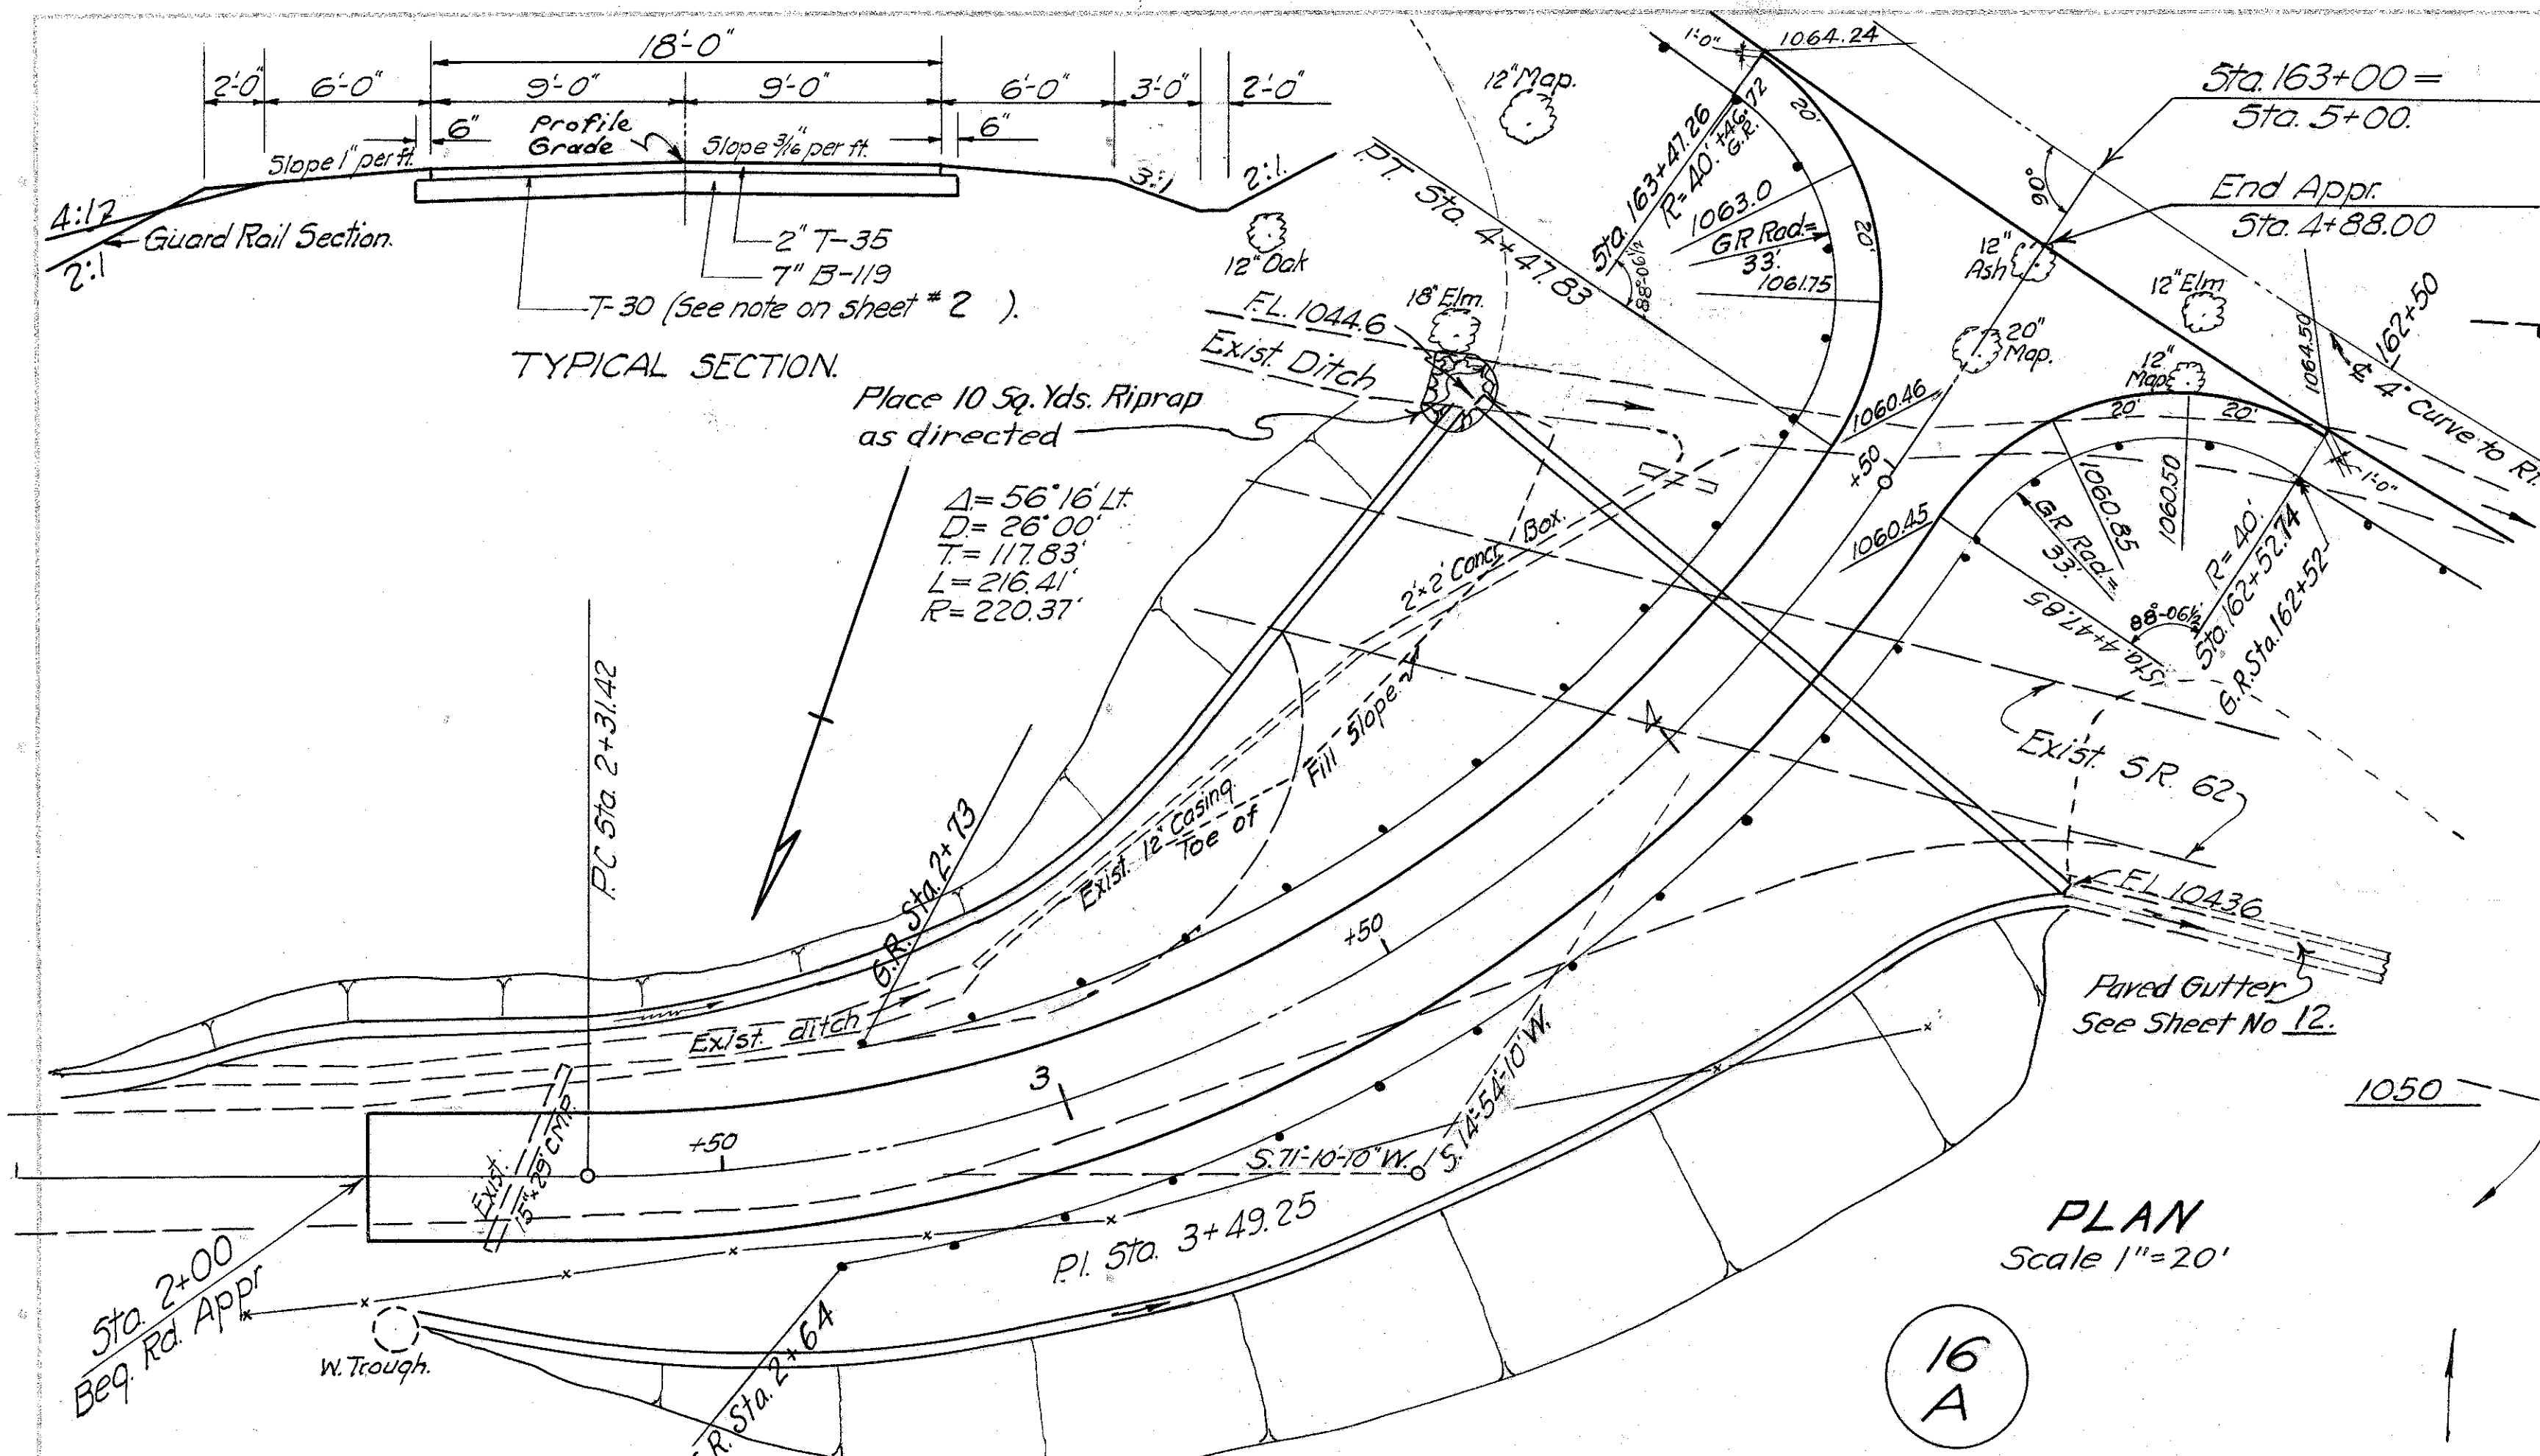 18'-0"
2'-0" 6'-0" 9'-0" 9'-0" 6'-0" 3'-0" 2'-0"
6" Profile 6"
Grade
Slope 1" per ft.
Slope 3/16" per ft.
3:1
2:1
4:12
2:1
Guard Rail Section.
2" T-35
7" B-119
T-30 (See note on sheet # 2 ).
TYPICAL SECTION.
Place 10 Sq. Yds. Riprap
as directed
Δ= 56°16' Lt.
D= 26°00'
T= 117.83'
L= 216.41'
R= 220.37'
12" Map.
12" Oak
18" Elm.
F.L. 1044.6
Exist. Ditch
P.T. Sta. 4+47.83
1'-0"
1064.24
Sta. 163+47.26
R=40'
+46.72
G.R.
20'
20'
1063.0
GR Rad=
33'
1061.75
88°-06½'
Sta. 163+00 =
Sta. 5+00.
90°
End Appr.
Sta. 4+88.00
12"
Ash
12" Elm
20"
Map.
12"
Map.
1064.50
162+50
℄ 4° Curve to Rt.
1060.46
+50
1060.45
20' 20'
1060.85
1060.50
1'-0"
GR Rad=
33'
R=40'
88°-06½'
Sta. 4+47.85
Sta. 162+52.74
G.R. Sta. 162+52
2'x2' Concr. Box.
Exist. 12" Casing
Toe of Fill Slope
4
Exist. S.R. 62
F.L. 1043.6
Paved Gutter
See Sheet No 12.
1050
P.C. Sta. 2+31.42
G.R. Sta. 2+73
Exist. ditch
+50
3
+50
Exist.
15"x29' C.M.P.
S.71°-10'-10" W.
S.14°-54'-10" W.
P.I. Sta. 3+49.25
Sta. 2+00
Beg. Rd. Appr
W. Trough.
G.R. Sta. 2+64
PLAN
Scale 1"=20'
16
A